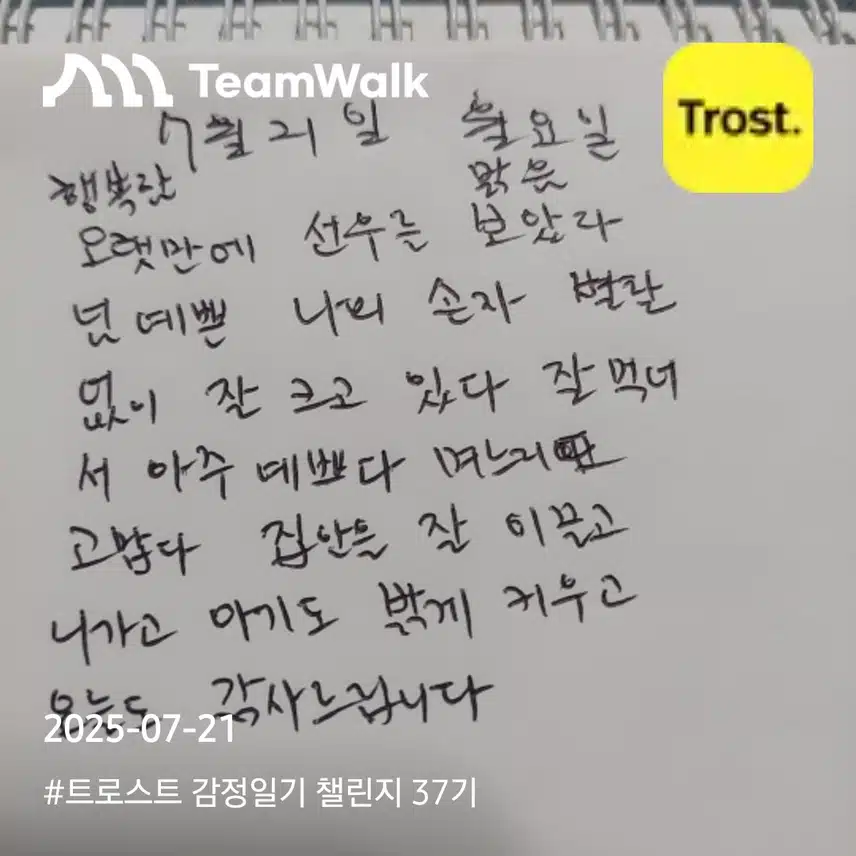 TeamWalk
Trost.
7월 21일 월요일
행복한 맑음
오랫만에 선우를 보았다
넘 예쁜 나의 손자 별탈
없이 잘 크고 있다 잘먹어
서 아주 예쁘다 며느리
고맙다 집안을 잘 이끌고
나가고 아기도 밝게 키우고
오늘도 감사느립니다
2025-07-21
#트로스트 감정일기 챌린지 37기